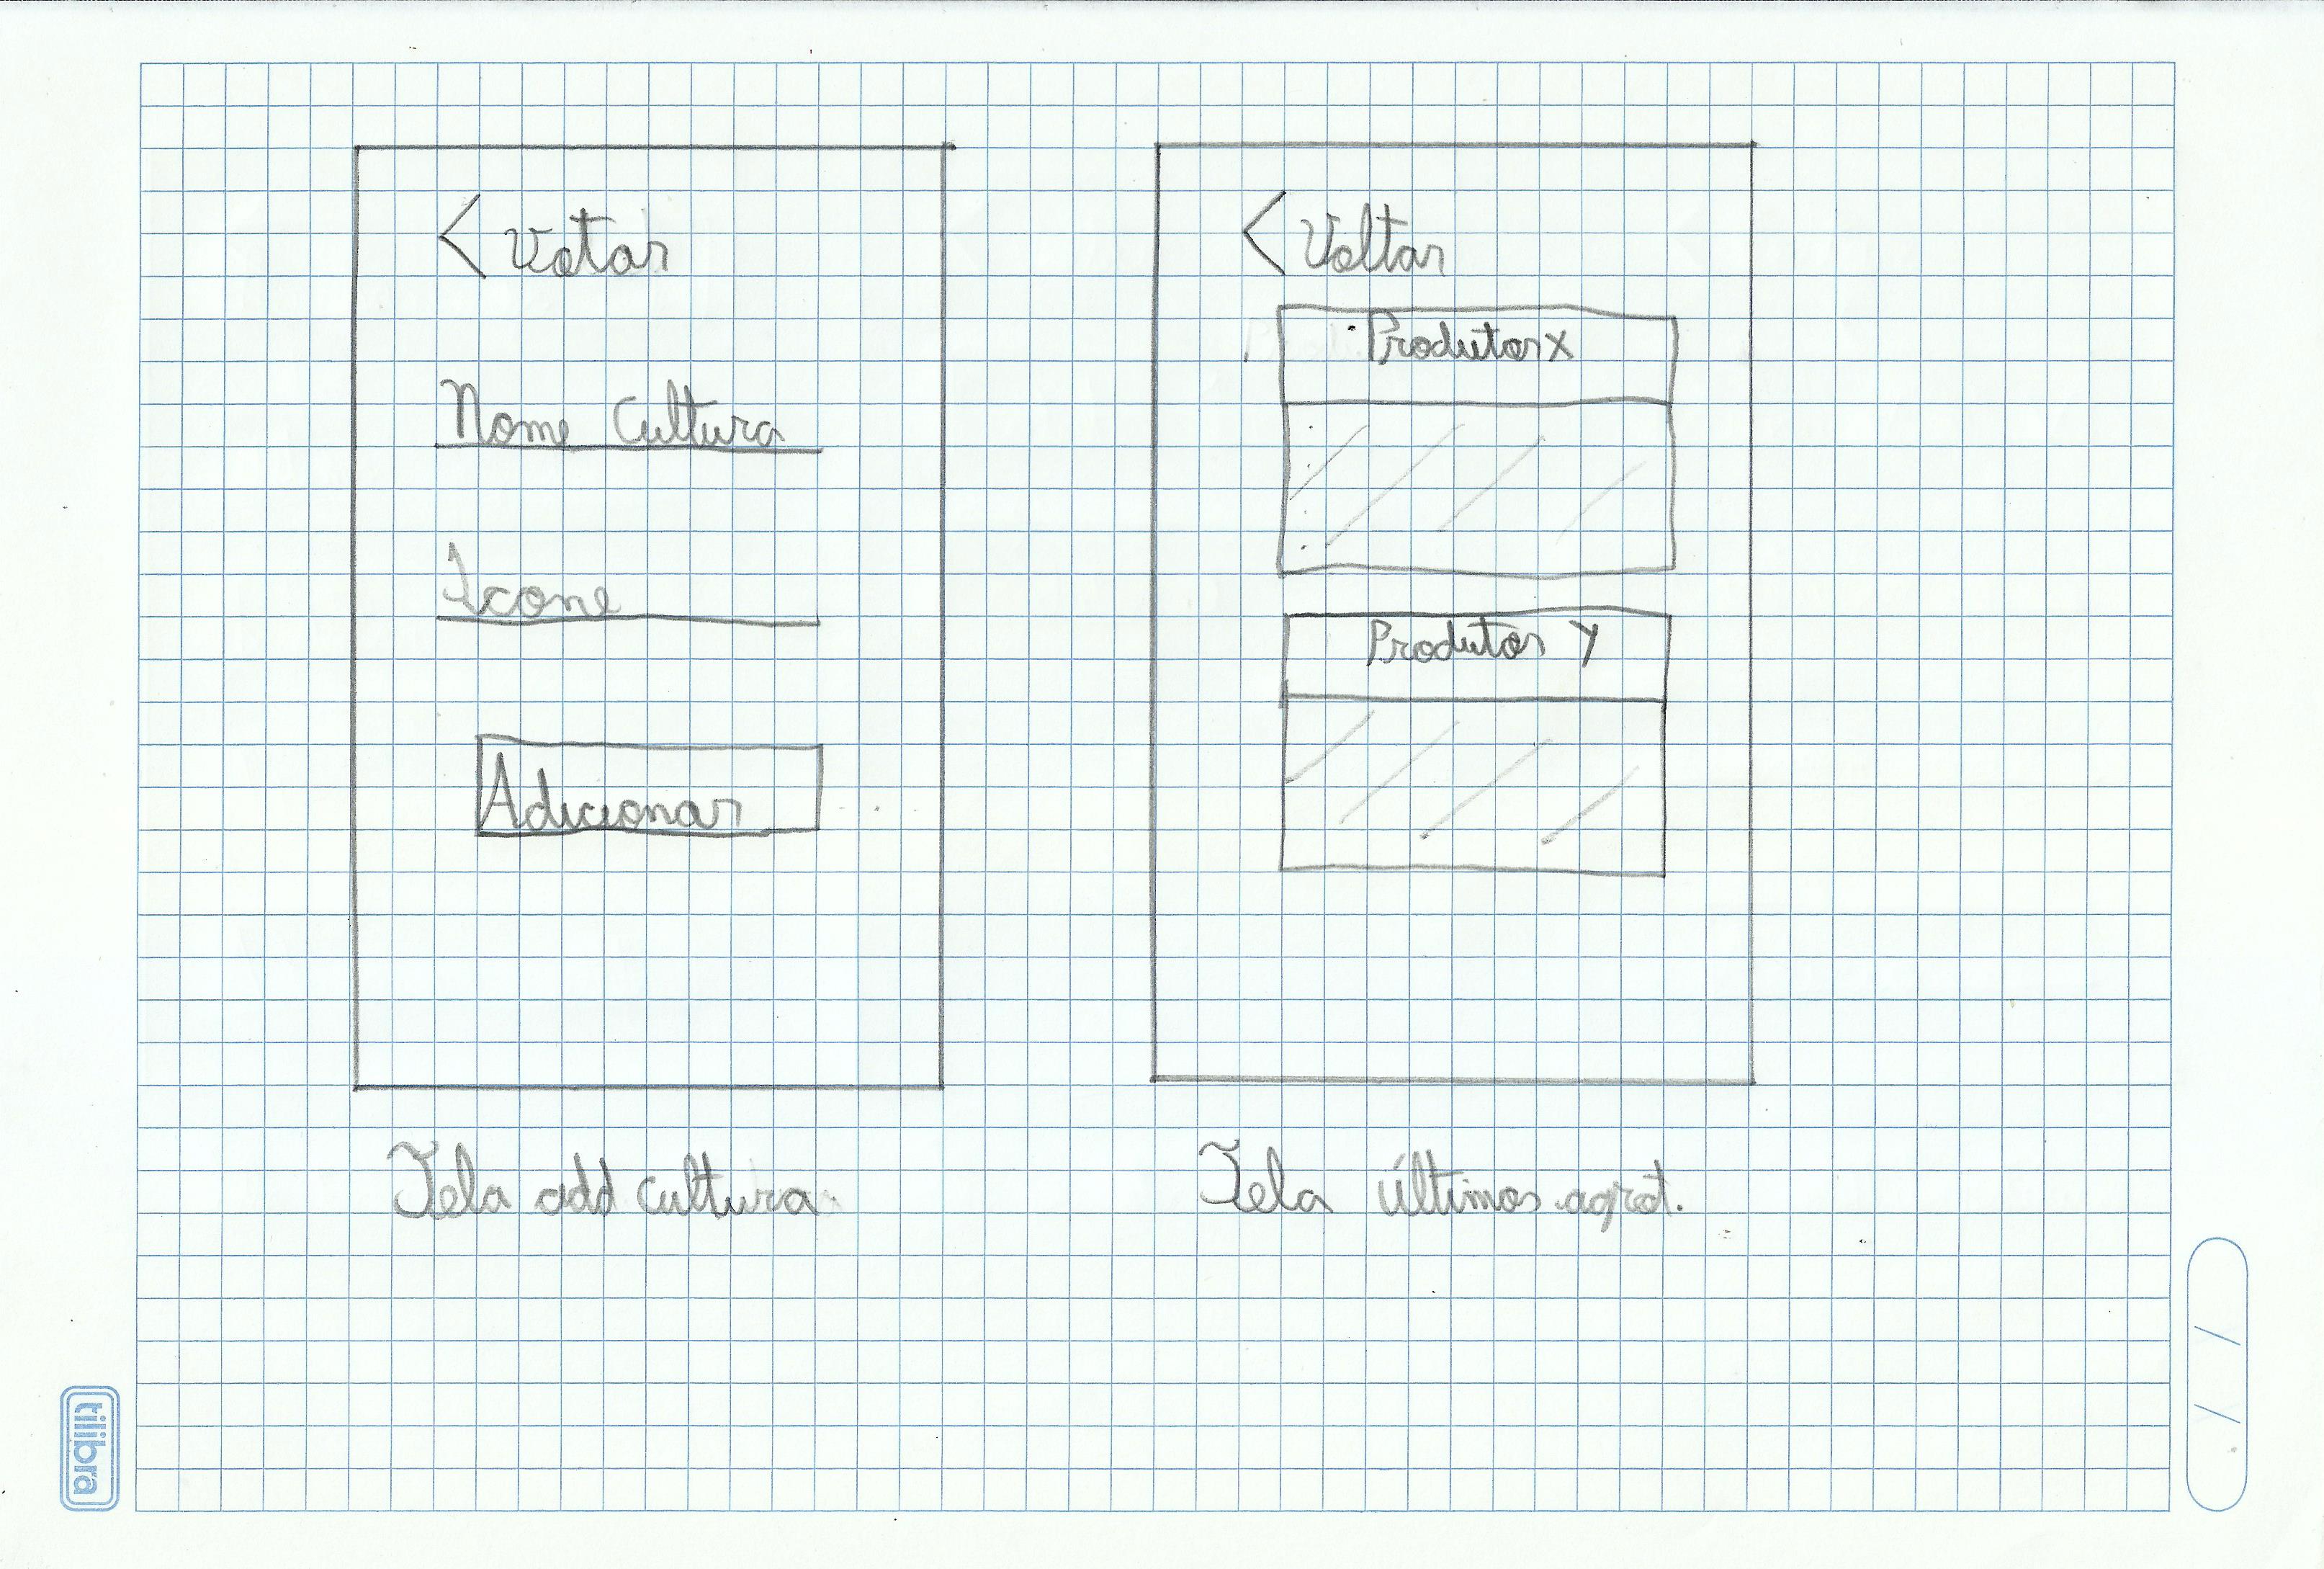 < Votar
Nome Cultura
Ícone
Adicionar
Tela add cultura
< Voltar
Produtor X
Produtor Y
Tela últimos agrot.
tilibra
/ /